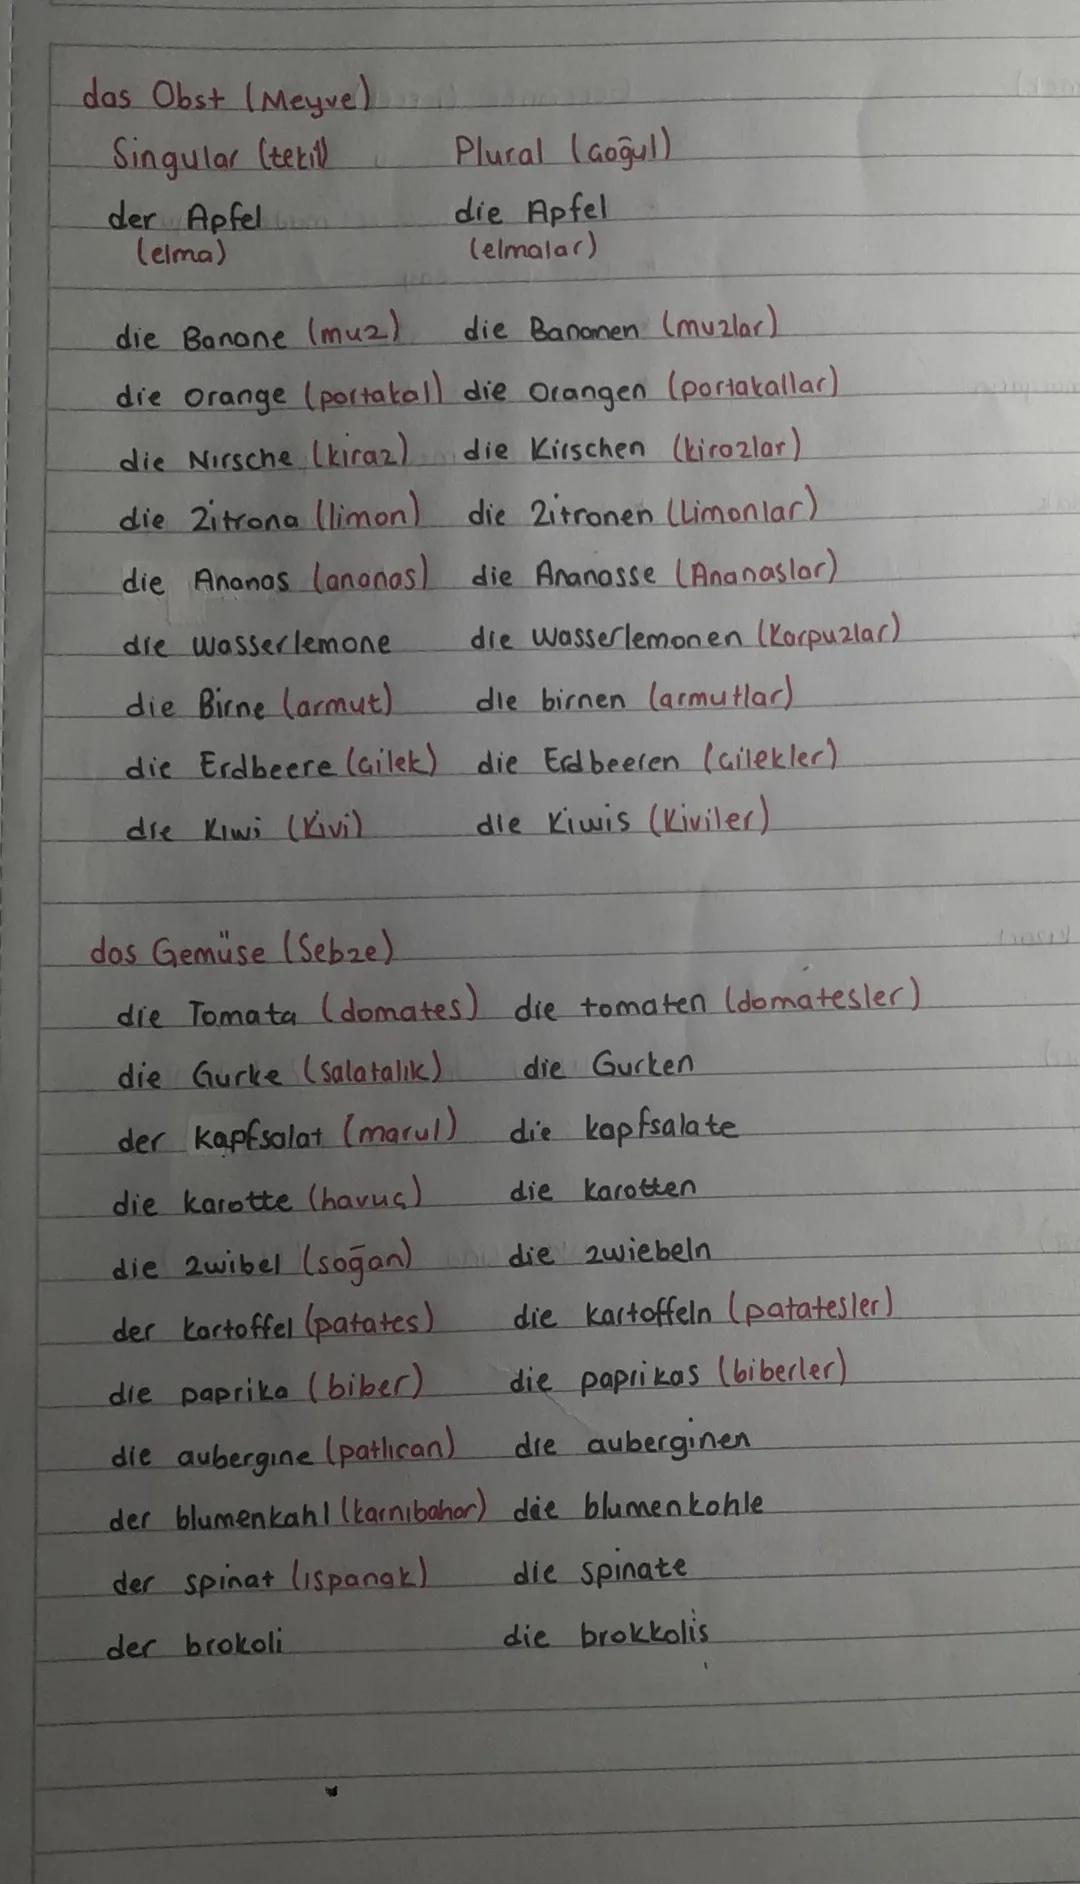 das Obst (Meyve)
Singular (tekil) Plural (çoğul)
der Apfel die Apfel
(elma) (elmalar)
die Banane (muz) die Bananen (muzlar)
die Orange (portakal) die Orangen (portakallar)
die Nırsche (kiraz) die Kirschen (kirazlar)
die Zitrona (limon) die Zitronen (Limonlar)
die Ananas (ananas) die Ananasse (Ananaslar)
die wasserlemone die wasserlemonen (Karpuzlar)
die Birne (armut) die birnen (armutlar)
die Erdbeere (çilek) die Erdbeeren (çilekler)
die Kiwi (Kivi) die Kiwis (Kiviler)
das Gemüse (Sebze)
die Tomata (domates) die tomaten (domatesler)
die Gurke (salatalık) die Gurken
der kapfsalat (marul) die kapfsalate
die karotte (havuç) die karotten
die zwibel (soğan) die zwiebeln
der kartoffel (patates) die kartoffeln (patatesler)
die paprika (biber) die paprikas (biberler)
die aubergine (patlıcan) die auberginen
der blumenkahl (karnıbahar) die blumenkohle
der spinat (ıspanak) die spinate
der brokoli die brokkolis